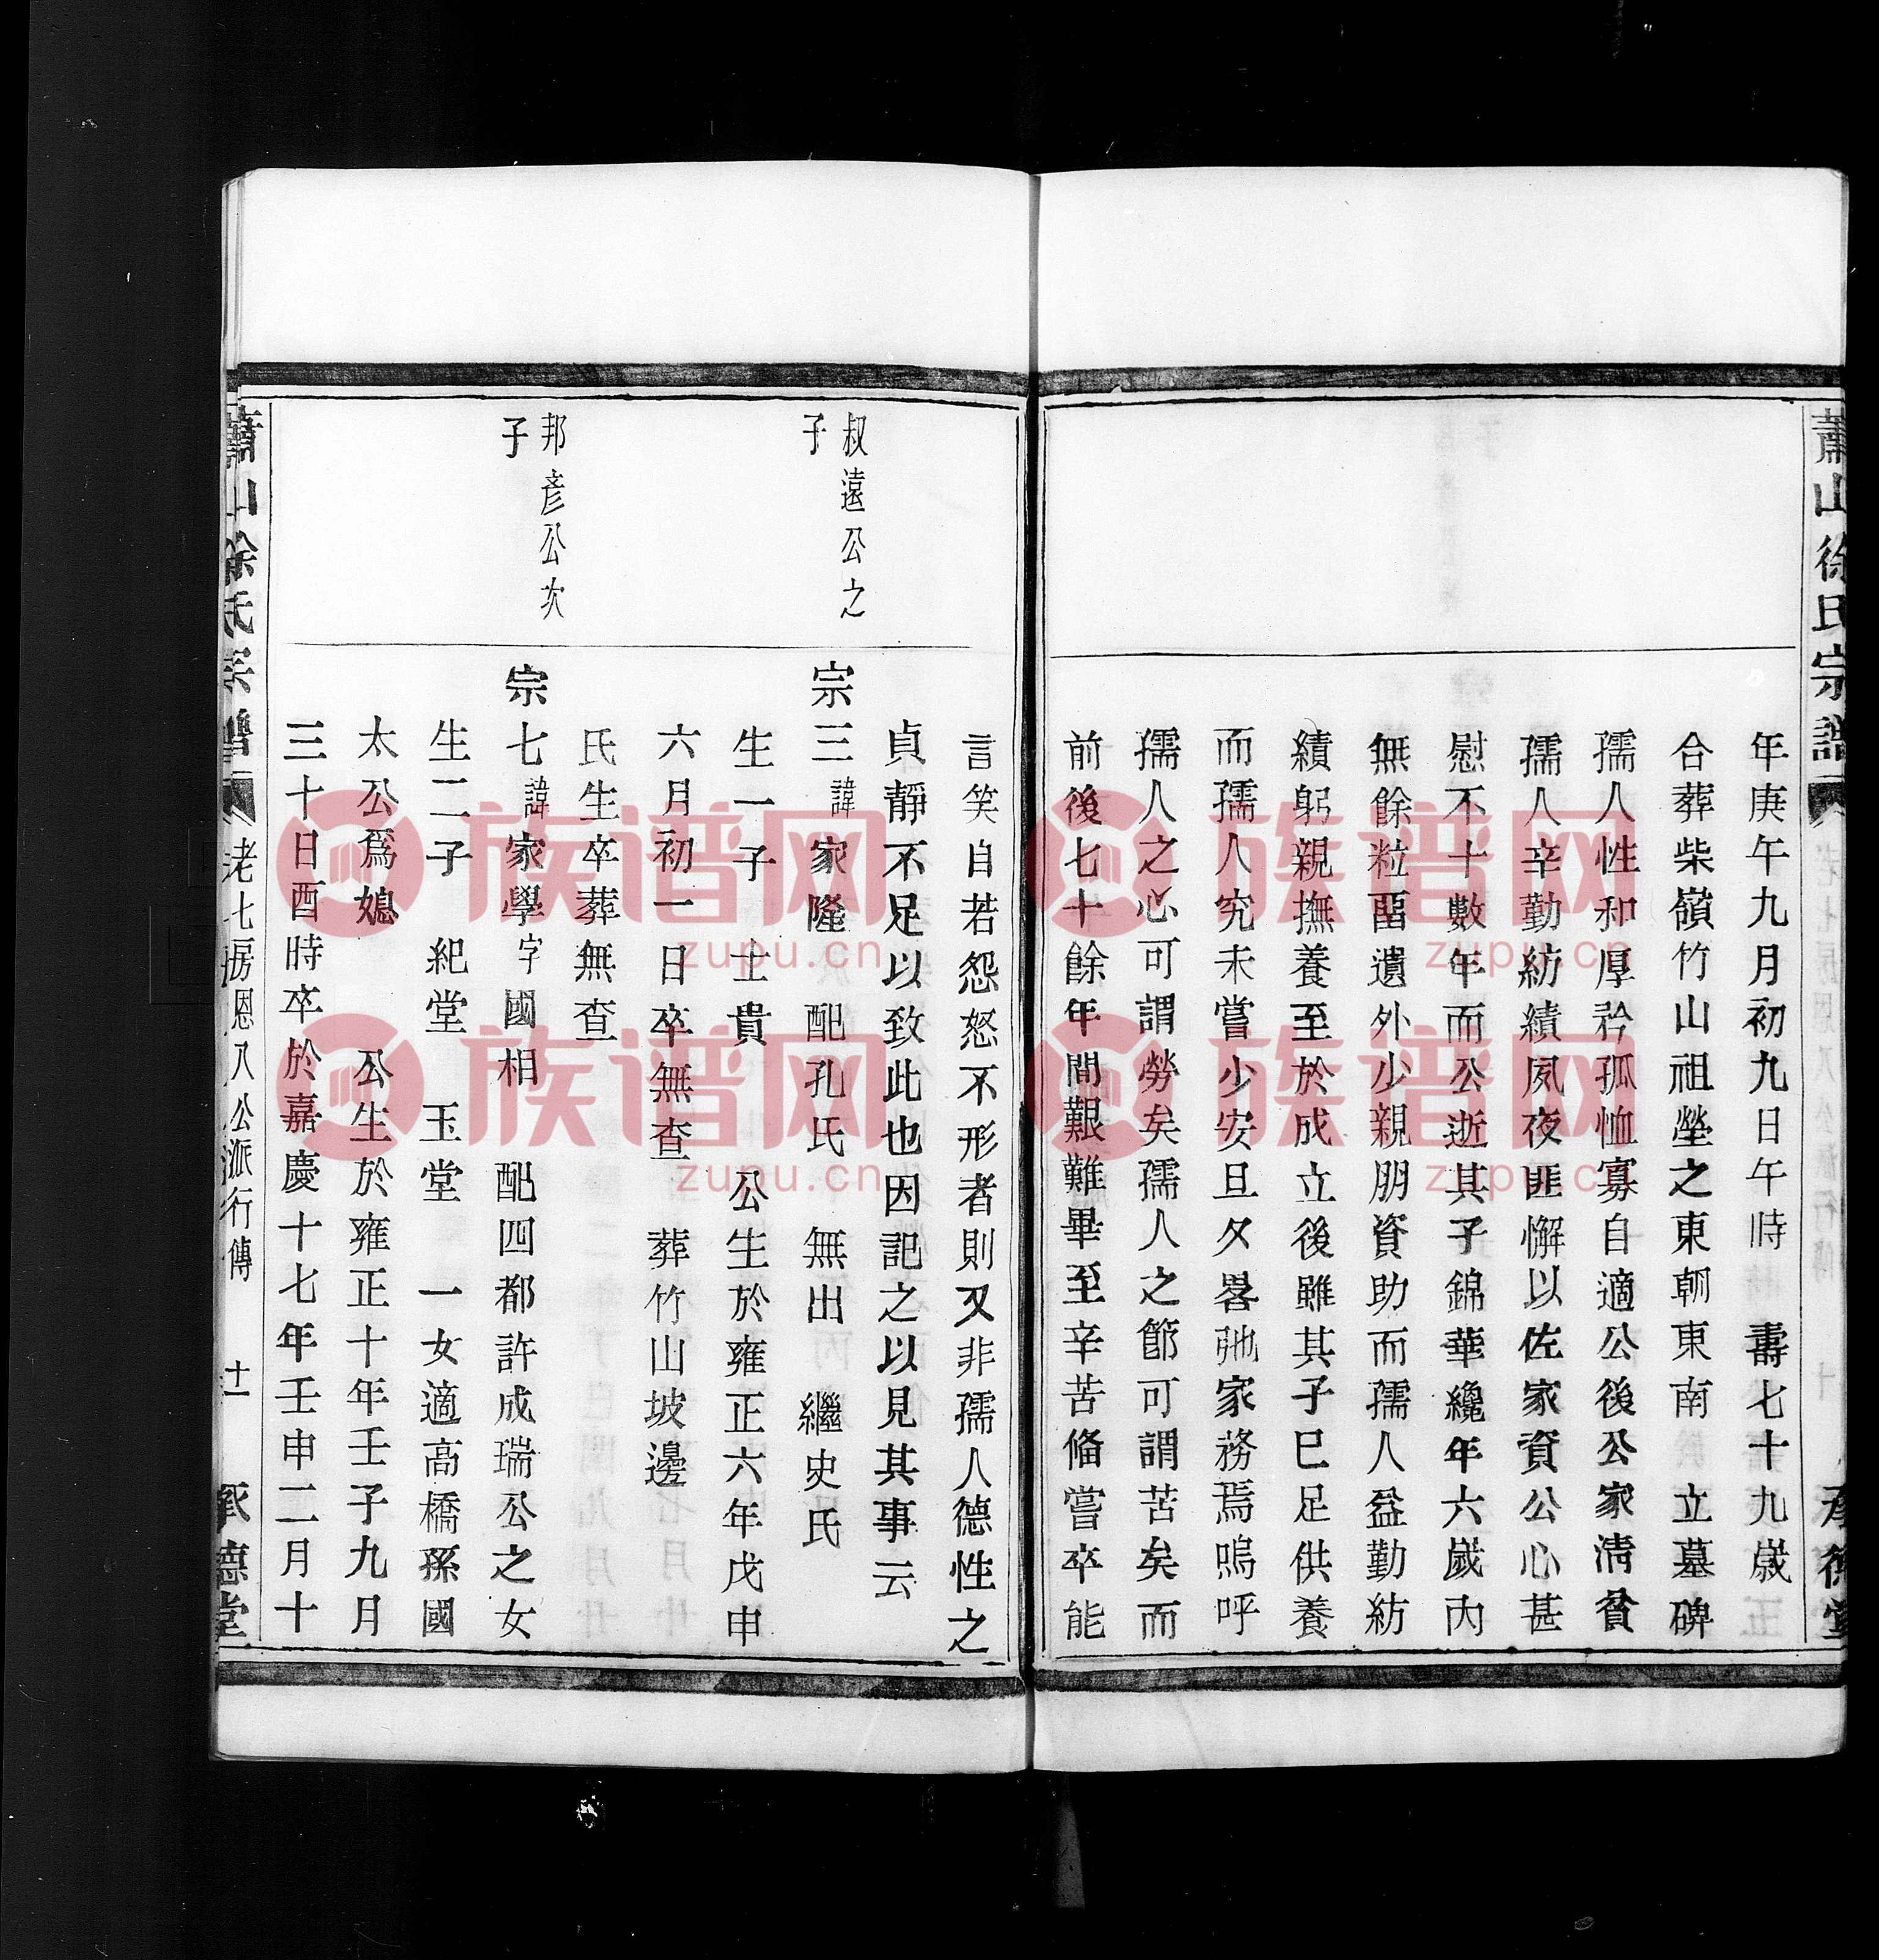 蕭山徐氏宗譜
承德堂
年庚午九月初九日午時 壽七十九歲
合葬柴嶺竹山祖塋之東朝東南 立墓碑
孺人性和厚矜孤恤寡自適公後公家淸貧
孺人辛勤紡績夙夜匪懈以佐家資公心甚
慰不十數年而公逝其子錦華纔年六歲內
無餘粒畱遺外少親朋資助而孺人益勤紡
績躬親撫養至於成立後雖其子已足供養
而孺人究未嘗少安旦夕畧弛家務焉嗚呼
孺人之心可謂勞矣孺人之節可謂苦矣而
前後七十餘年間艱難畢至辛苦偹嘗卒能
言笑自若怨怒不形者則又非孺人德性之
貞靜不足以致此也因記之以見其事云
叔遠公之
子
宗三 諱家隆 配孔氏 無出 繼史氏
生一子 士貴 公生於雍正六年戊申
六月初一日卒無查 葬竹山坡邊
氏生卒葬無查
邦彥公次
子
宗七 諱家學 字國相 配四都許成瑞公之女
生二子 紀堂 玉堂 一女適高橋孫國
太公爲媳 公生於雍正十年壬子九月
三十日酉時卒於嘉慶十七年壬申二月十
蕭山徐氏宗譜
老七房恩八公派行傳
十一
承德堂
族谱网
zupu.cn
族谱网
zupu.cn
族谱网
zupu.cn
族谱网
zupu.cn